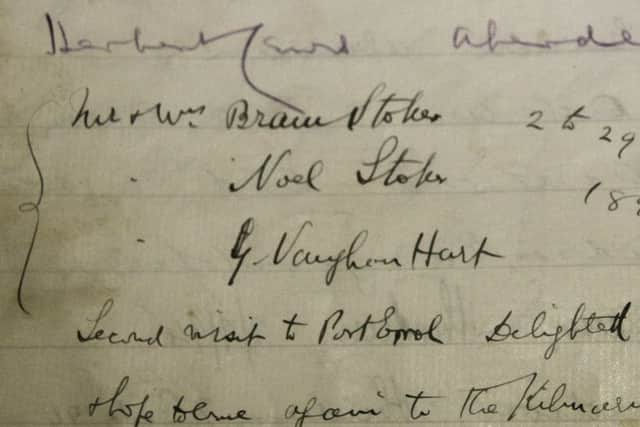 Herbert Aberde
Mr & Mrs Bram Stoker 2 to 29
" Noel Stoker 189
" G. Vaughan Hart
Second visit to Port Errol Delighted
& hope to come again to the Kilmarn